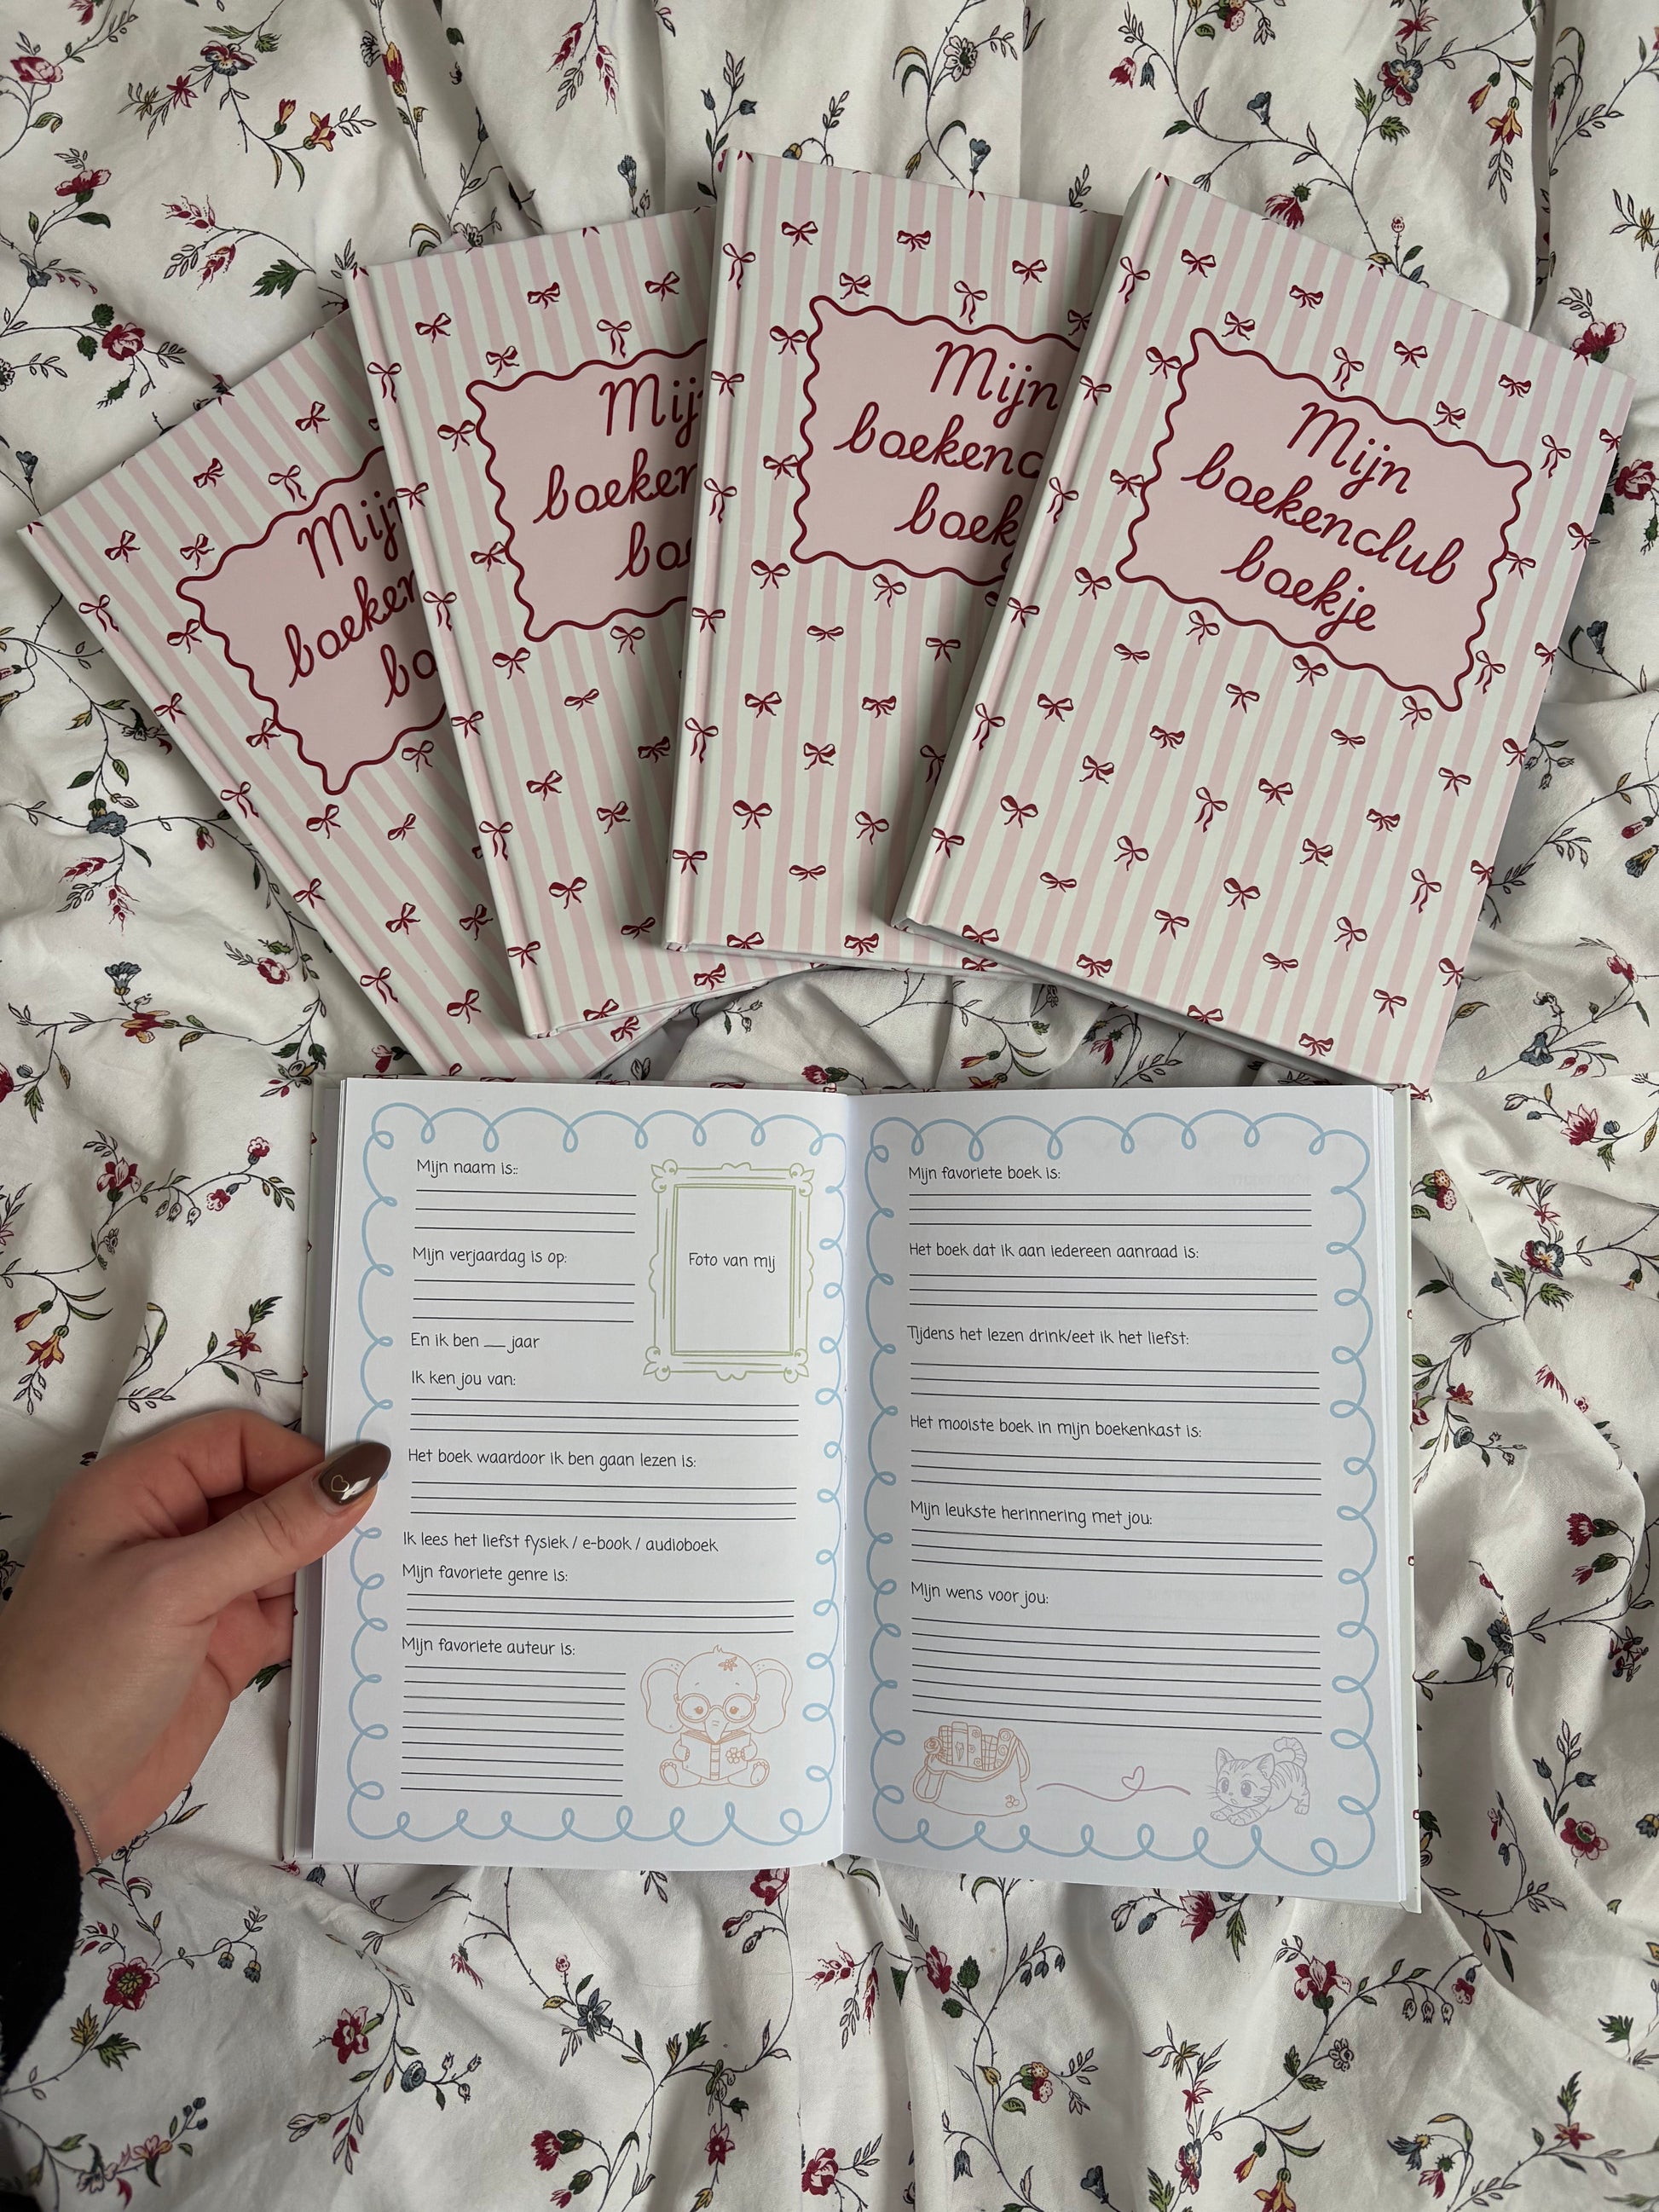 Mijn
boeken
Mijn
boeken
Mijn
boekenc
boek
Mijn
boekenclub
boekje
Mijn naam is::
Mijn verjaardag is op:
En ik ben ___ jaar
Foto van mij
Ik ken jou van:
Het boek waardoor ik ben gaan lezen is:
Ik lees het liefst fysiek / e-book / audioboek
Mijn favoriete genre is:
Mijn favoriete auteur is:
Mijn favoriete boek is:
Het boek dat ik aan iedereen aanraad is:
Tijdens het lezen drink/eet ik het liefst:
Het mooiste boek in mijn boekenkast is:
Mijn leukste herinnering met jou:
Mijn wens voor jou: